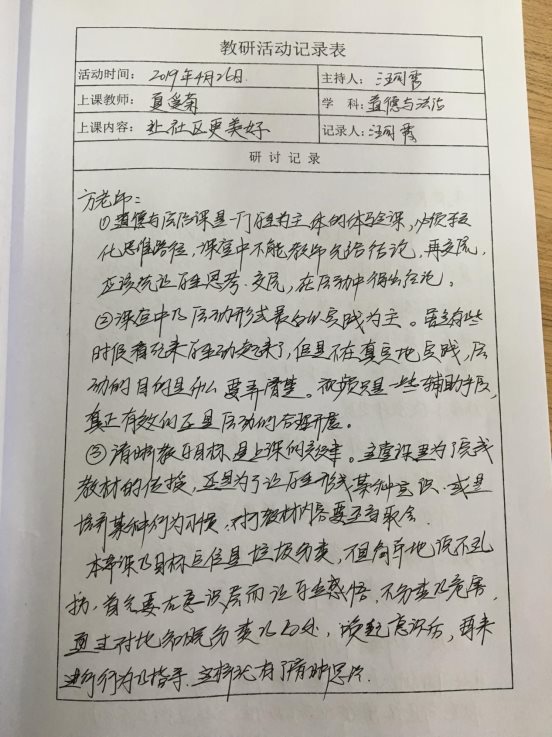 教研活动记录表
活动时间： 2019年4月26日
主持人： 汪
上课教师：
学 科：道德与法治
上课内容： 让社区更美好
记录人：汪
研 讨 记 录
方老师：
①道德与法治课是一门学生为主体的体验课，必须
化思维路径，课堂中不能教师先给结论，再交流，
应该先让学生思考、交流，在活动中得出结论。
②课堂中的活动形式最好以实践为主。有些
时候看起来学生动起来了，但是不在真实地实践，活
动的目的是什么要弄清楚。视频只是一些辅助手段，
真正有效的还是活动的合理开展。
③清晰教学目标是上课的。这堂课是为了完成
教材的任务，还是为了让学生形成某种意识，或是
培养某种行为习惯，对于教材内容要
本节课的目标定位是垃圾分类，但简单地说不乱
扔，首先要在意识层面让学生感悟，不分类的危害，
通过对比知晓分类的好处，意识后，再来
进行行为的指导。这样就有了清晰思路。